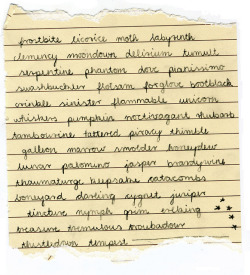 frostbite licorice moth labyrinth
clemency moondown delirium tumult
serpentine phantom dove pianissimo
swashbuckler flotsam foxglove bootblack
crinkle sinister flammable unicorn
whiskers pumpkin noctivagant rhubarb
tambourine tattered piracy thimble
galleon marrow smolder honeydew
lunar palomino jasper brandywine
thaumaturge keepsake catacombs
boneyard darling cygnet juniper
tincture nymph grim etching
treasure tremulous troubadour
thistledown tempest